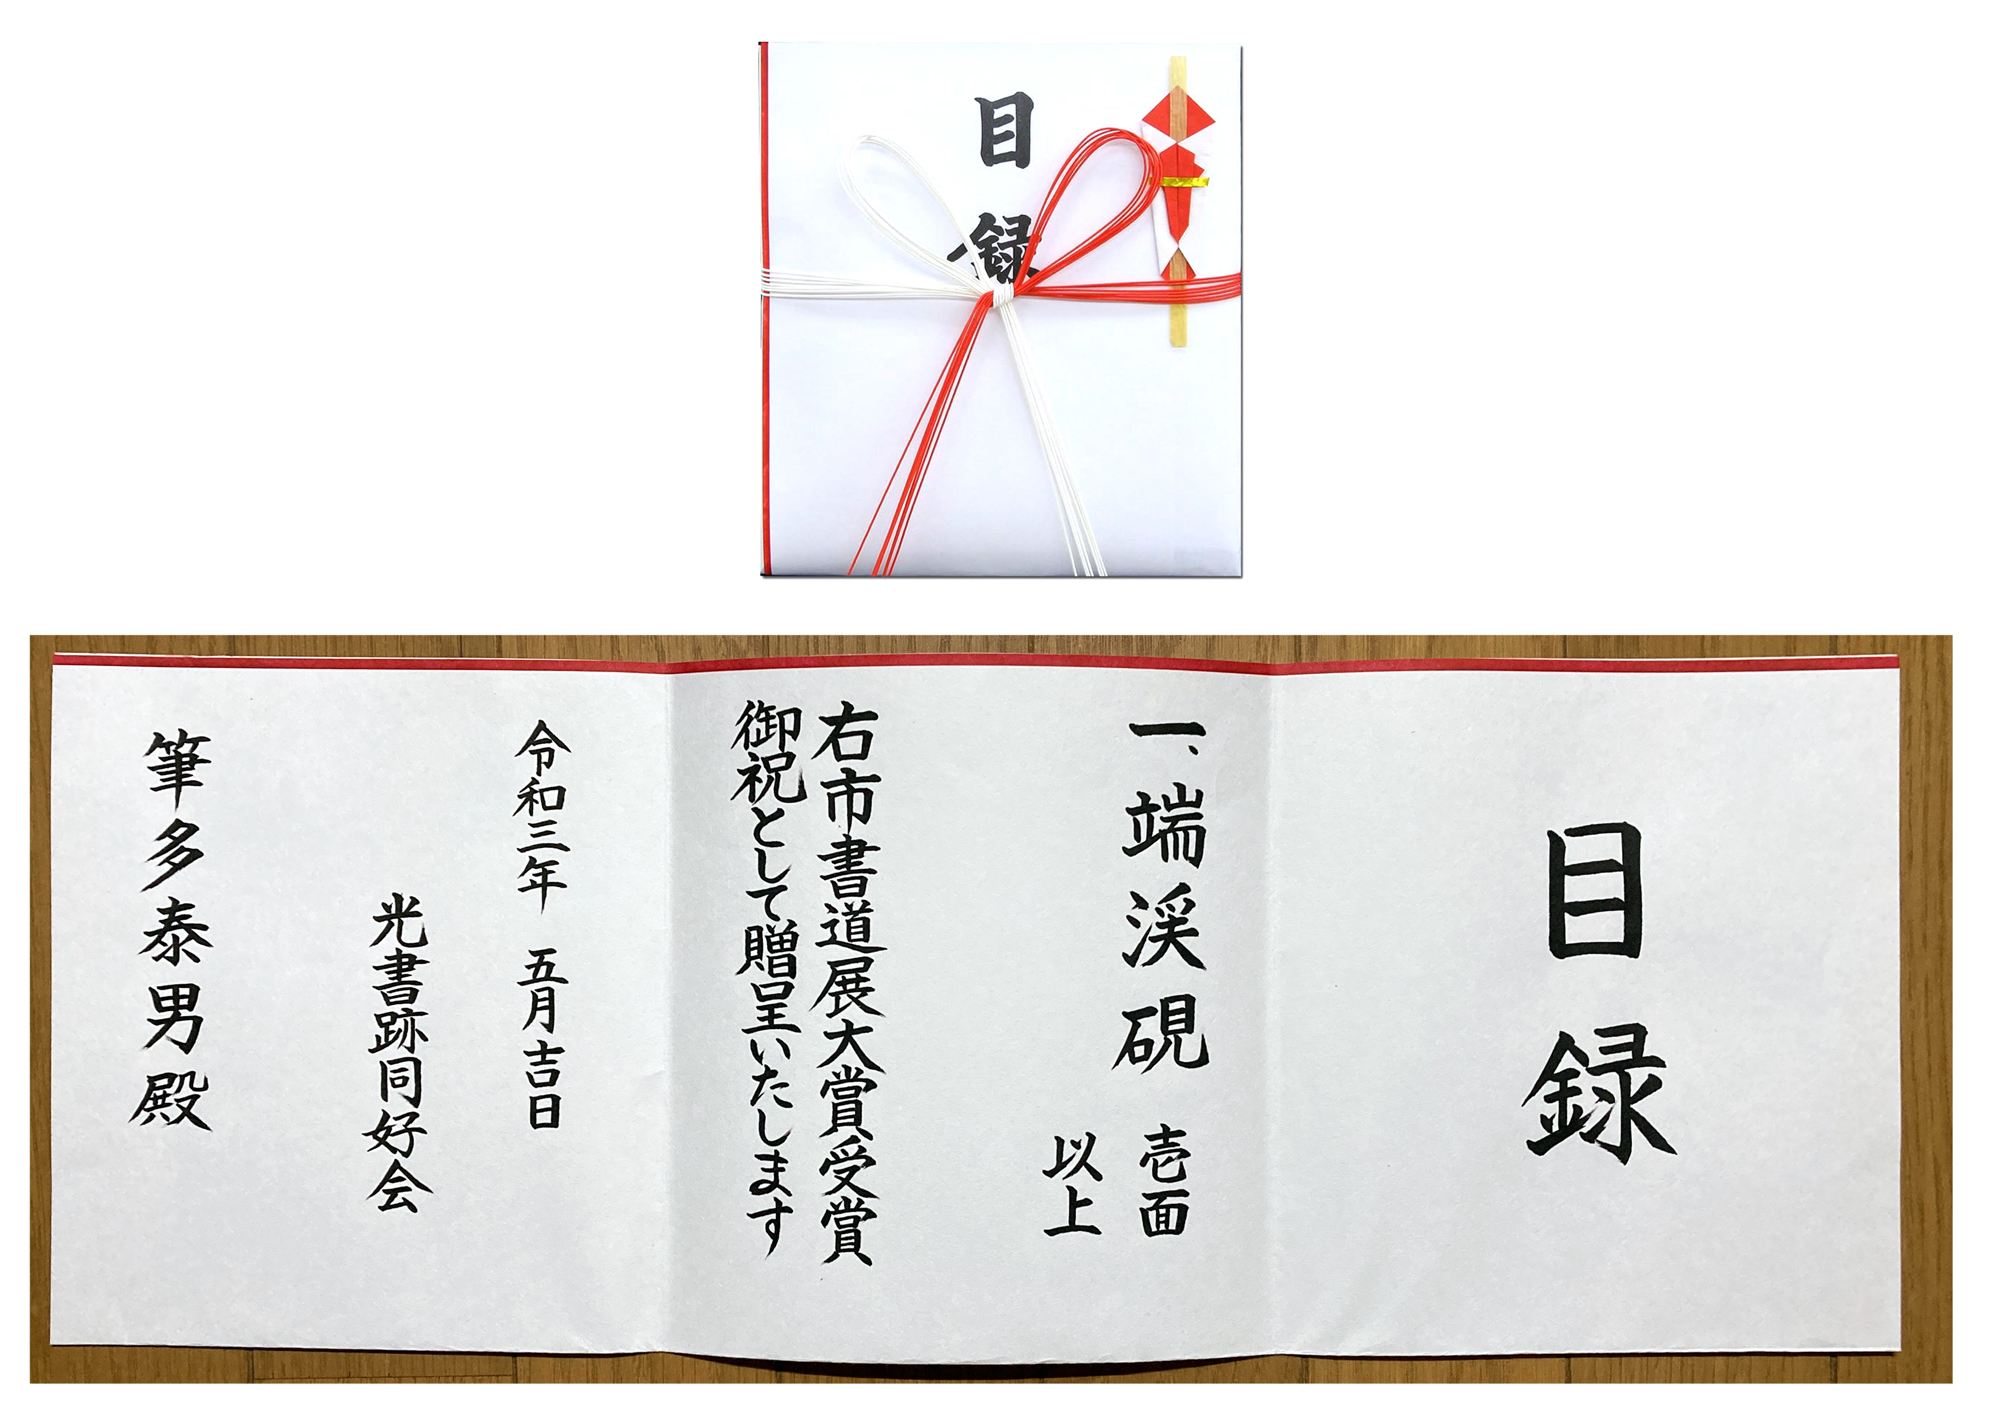 目録
目録
一、端渓硯 壱面
以上
右市書道展大賞受賞
御祝として贈呈いたします
令和三年 五月吉日
光書跡同好会
筆多泰男殿